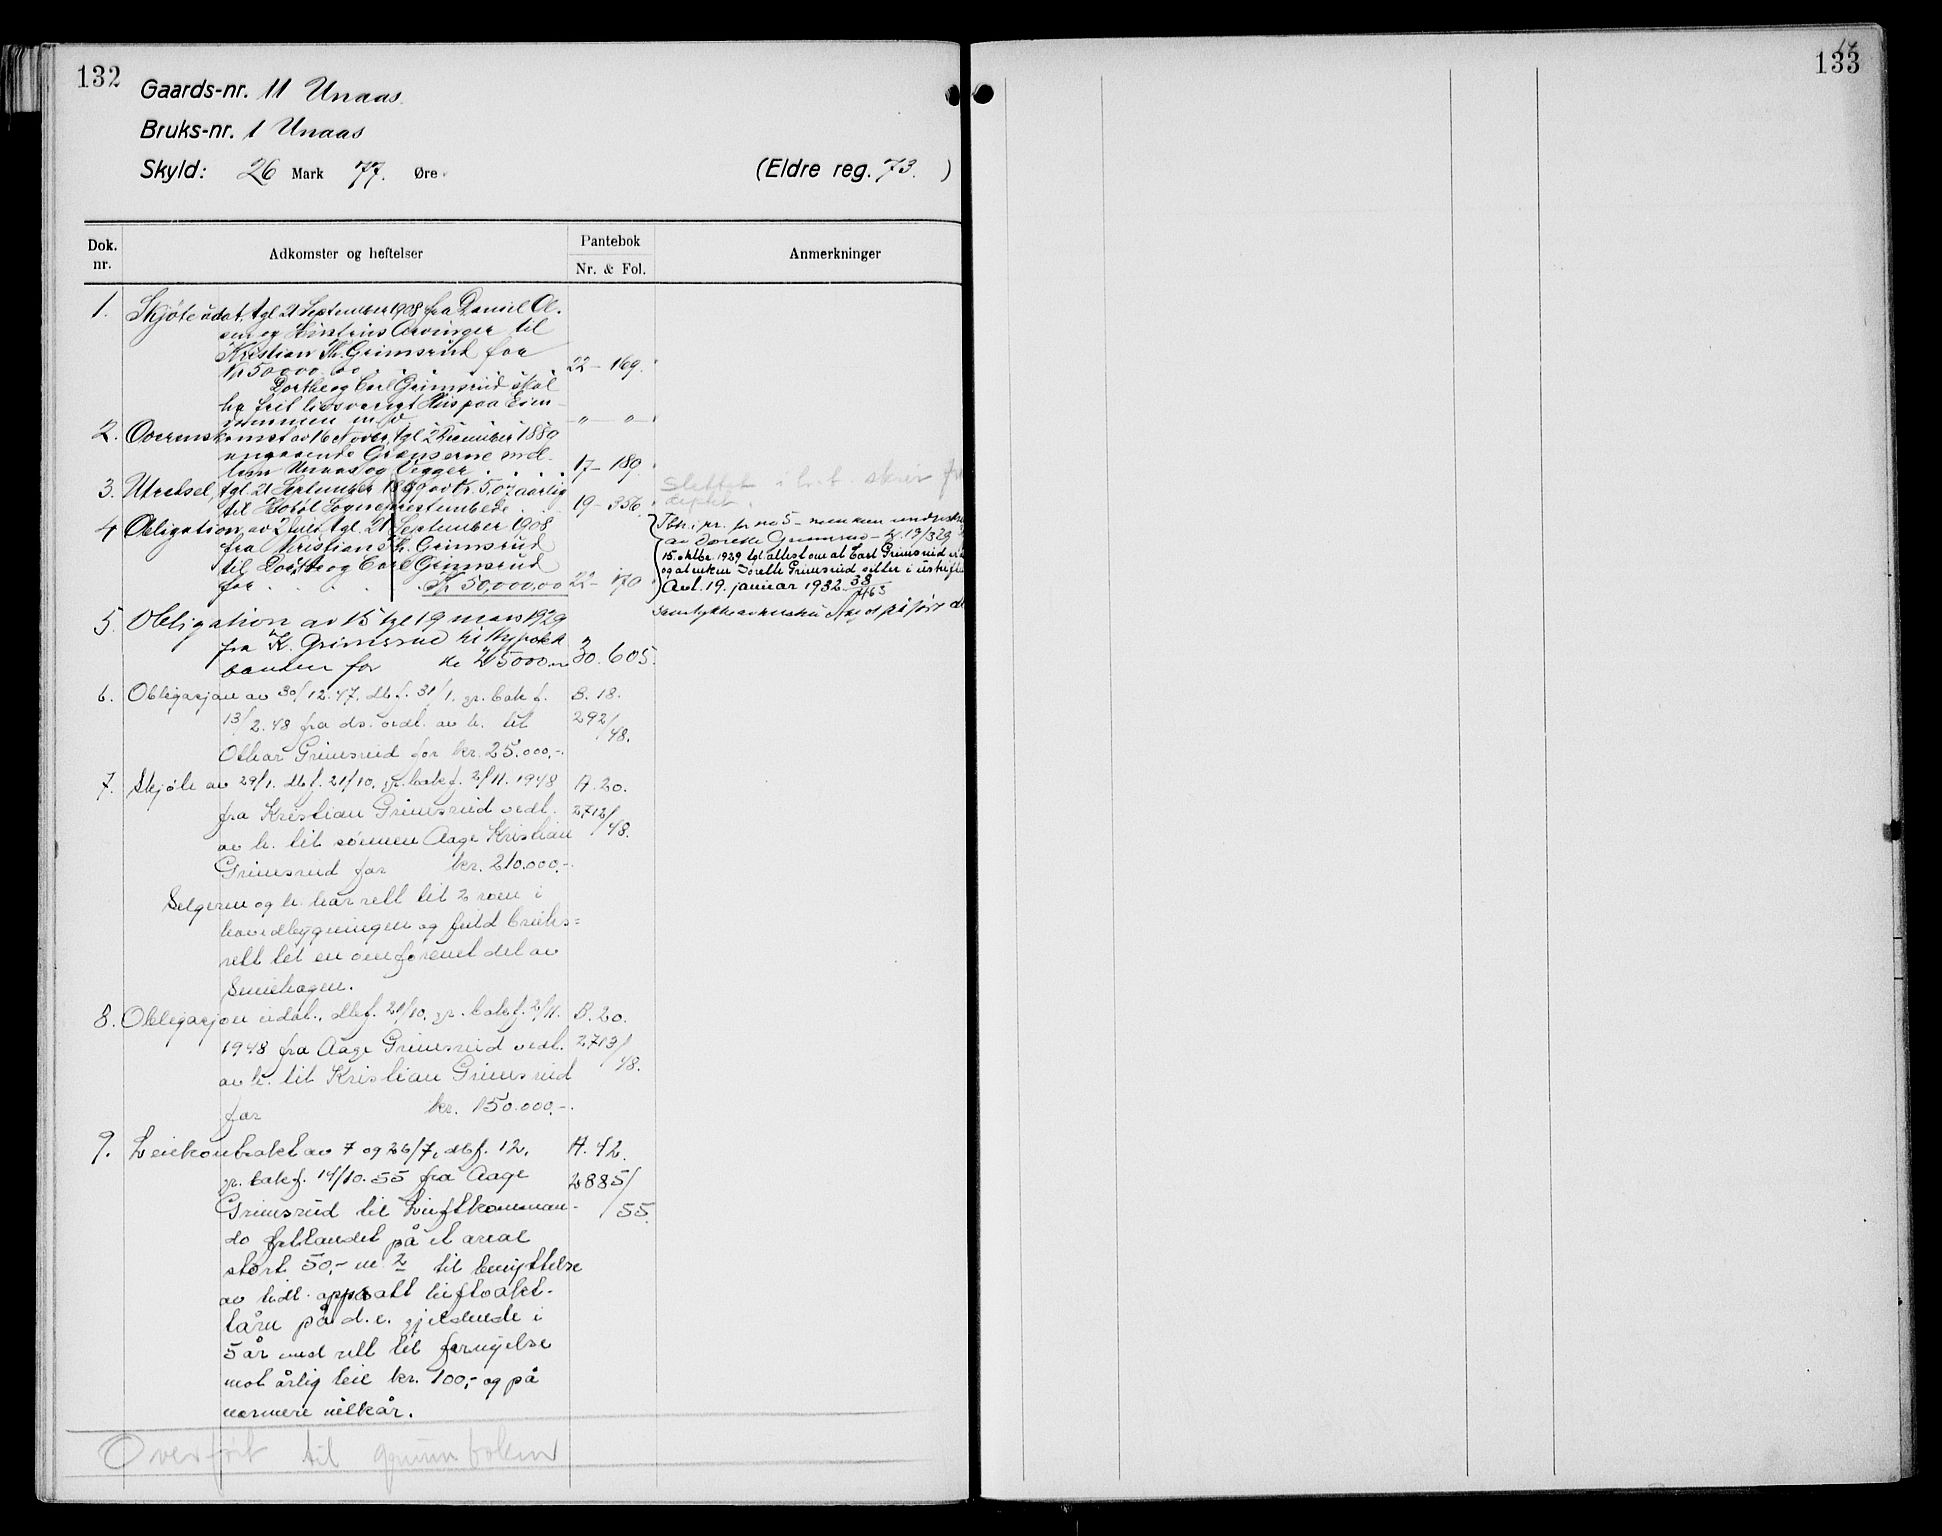 132
Gaards-nr. 11 Unaas.
Bruks-nr. 1 Unaas
Skyld: 26 Mark 77. Øre.
(Eldre reg. 73. )
Dok. nr.
Adkomster og heftelser
Pantebok
Nr. & Fol.
Anmerkninger
1. Skjøte udat. tgl 21 September 1908 fra Daniel Ol-
sen og Hustrus Arvinger til
Kristian Th. Grimsrud for
Kr 50000,00 . . . 22 – 169.
Dorthe og Carl Grimsrud skal
ha frit livsvarigt Hus paa Eien-
dommen m. v. " – " –
2. Overenskomst av 16 Novbr, tgl 2 December 1889
angaaende Grænserne mel-
lem Unaas og Vegger . . . . 17 – 189.
3. Utredsel, tgl. 21 September 1899 av Kr. 5,07 aarlig
til Hobøl Sogneprestembede . . 19 – 356.
Slettet i h.t. skriv fra
deptet.
4 Obligation av 2 Juli, tgl. 21 September 1908
fra Kristian Th. Grimsrud
til Dorthe og Carl Grimsrud
for . . . . Kr 50,000,00 22 – 170
av Dorthe Grimsrud – tgl. 19/3 29
15 oktbr. 1929 tgl. attest om at Carl Grimsrud er
og at enken Dorthe Grimsrud sitter i uskiftet
Avl. 19. januar 1932. 38/463
5. Obligation av 15 tgl 19 mars 1929
fra K. Grimsrud til Hypotek
banken for kr 25000.00 30. 605.
6. Obligasjon av 30/12. 47, dbf. 31/1, gr. bok f.
13/2. 48 fra ds. vedt. av h. til
Othar Grimsrud for kr. 25.000,-.
B. 18.
292/48.
7. Skjøte av 29/1. dbf. 21/10, gr. bok f. 2/11. 1948
fra Kristian Grimsrud vedt.
av h. til sønnen Aage Kristian
Grimsrud for kr. 210.000,-.
A. 20.
2712/48.
Selgeren og h. har rett til 2 rom i
hovedbygningen og full bruks=
rett til en overforenet del av
Smiehagen.
8. Obligasjon udat., dbf. 21/10, gr. bok f. 2/11.
1948 fra Aage Grimsrud vedt.
av h. til Kristian Grimsrud
for kr. 150.000,-.
B. 20.
2713/48.
9. Leiekontrakt av 7 og 26/7, dbf. 12,
gr. bok f. 14/10. 55 fra Aage
Grimsrud til Luftkomman-
do Østlandet på et areal
stort 50,- m 2 til benyttelse
av tidl. oppsatt luftvakt-
tårn på d. e. gjeldende i
5 år med rett til fornyelse
mot årlig leie kr. 100,- og på
nærmere vilkår.
A. 42.
2885/55.
Overført til grunnboken
133